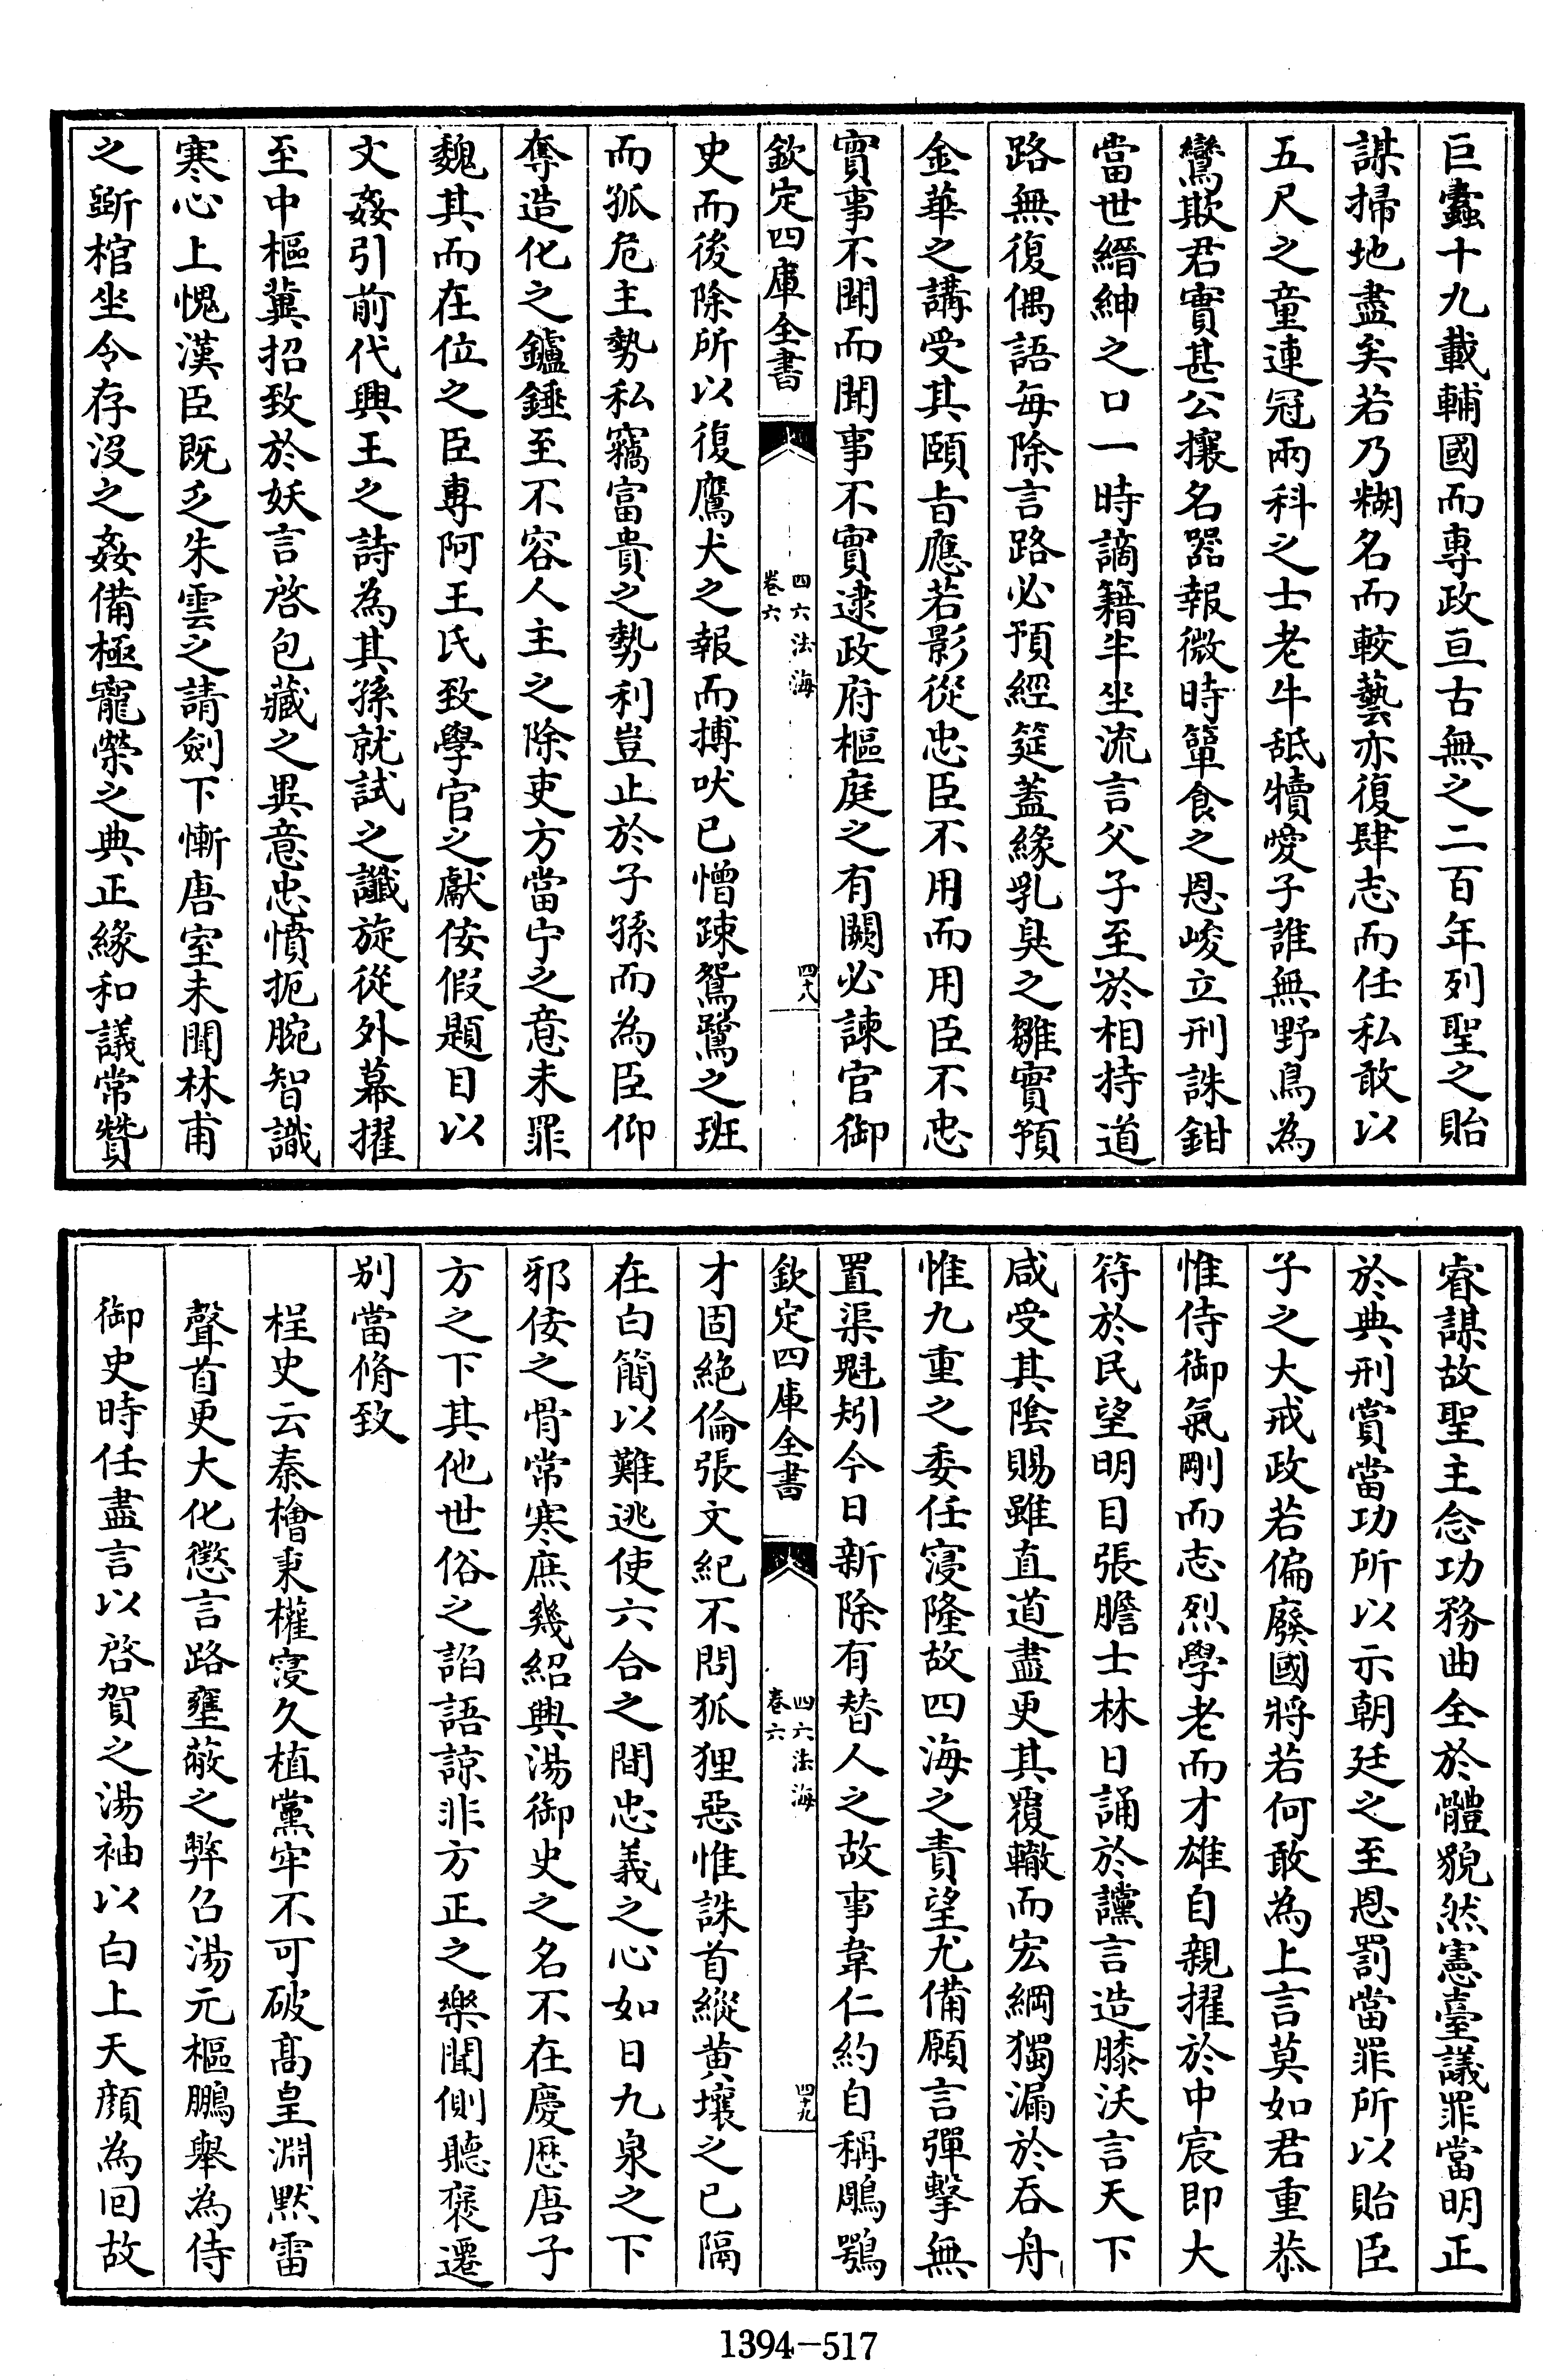 巨蠧十九載輔國而專政亘古無之二百年列聖之貽
謀掃地盡矣若乃糊名而較藝亦復肆志而任私敢以
五尺之童連冠兩科之士老牛舐犢愛子誰無野鳥為
鸞欺君實甚公攘名器報微時簞食之恩峻立刑誅鉗
當世縉紳之口一時謫籍半坐流言父子至於相持道
路無復偶語每除言路必預經筵蓋緣乳臭之雛實預
金華之講受其頤旨應若影從忠臣不用而用臣不忠
實事不聞而聞事不實逮政府樞庭之有闕必諫官御
欽定四庫全書
四六法海
卷六
四十八
史而後除所以復鷹犬之報而搏吠已憎踈鴛鷺之班
而孤危主勢私竊富貴之勢利豈止於子孫而為臣仰
奪造化之鑪錘至不容人主之除吏方當宁之意未罪
魏其而在位之臣專阿王氏致學官之獻佞假題目以
文姦引前代興王之詩為其孫就試之讖旋從外幕擢
至中樞冀招致於妖言啓包藏之異意忠憤扼腕智識
寒心上愧漢臣既乏朱雲之請劍下慚唐室未聞林甫
之斵棺坐令存沒之姦備極寵榮之典正緣和議常贊
睿謀故聖主念功務曲全於體貌然憲臺議罪當明正
於典刑賞當功所以示朝廷之至恩罰當罪所以貽臣
子之大戒政若偏廢國將若何敢為上言莫如君重恭
惟侍御氣剛而志烈學老而才雄自親擢於中宸即大
符於民望明目張膽士林日誦於讜言造膝沃言天下
咸受其陰賜雖直道盡更其覆轍而宏綱獨漏於吞舟
惟九重之委任寖隆故四海之責望尤備願言彈擊無
置渠魁矧今日新除有替人之故事韋仁約自稱鵰鶚
欽定四庫全書
四六法海
卷六
四十九
才固絶倫張文紀不問狐狸惡惟誅首縱黄壤之已隔
在白簡以難逃使六合之間忠義之心如日九泉之下
邪佞之骨常寒庶幾紹興湯御史之名不在慶厯唐子
方之下其他世俗之諂語諒非方正之樂聞側聽褒遷
别當脩致
桯史云秦檜秉權寖久植黨牢不可破髙皇淵黙雷
聲首更大化懲言路壅蔽之弊召湯元樞鵬舉為侍
御史時任盡言以啓賀之湯袖以白上天顔為回故
1394—517